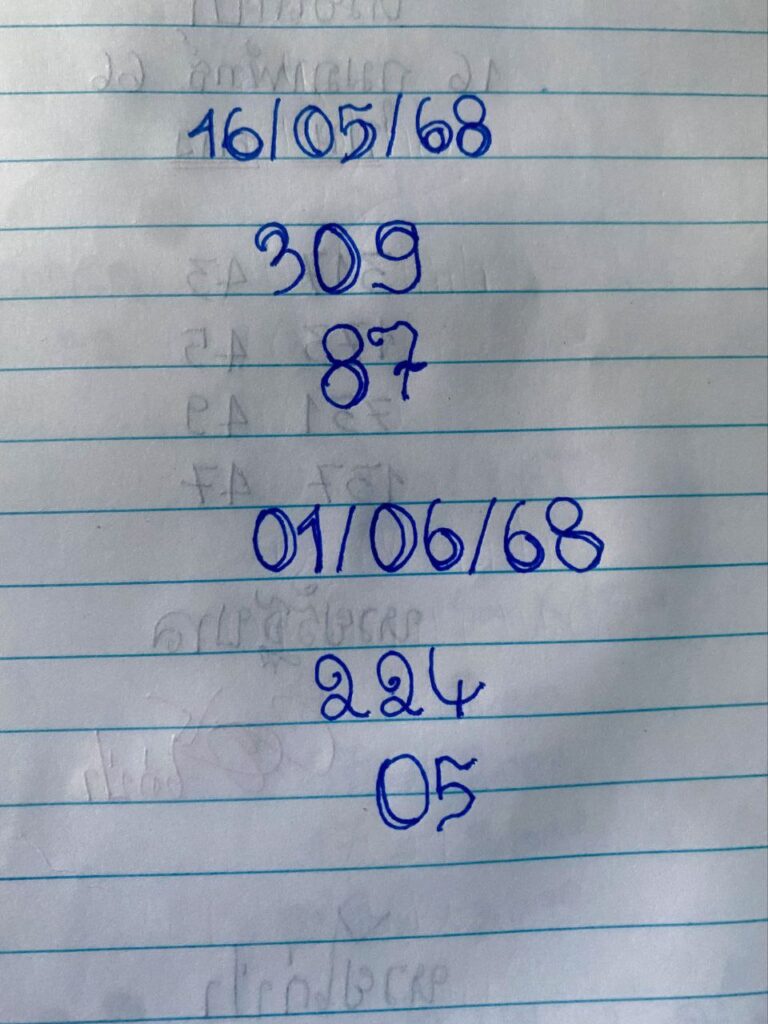 16/05/68
309
87
01/06/68
224
05